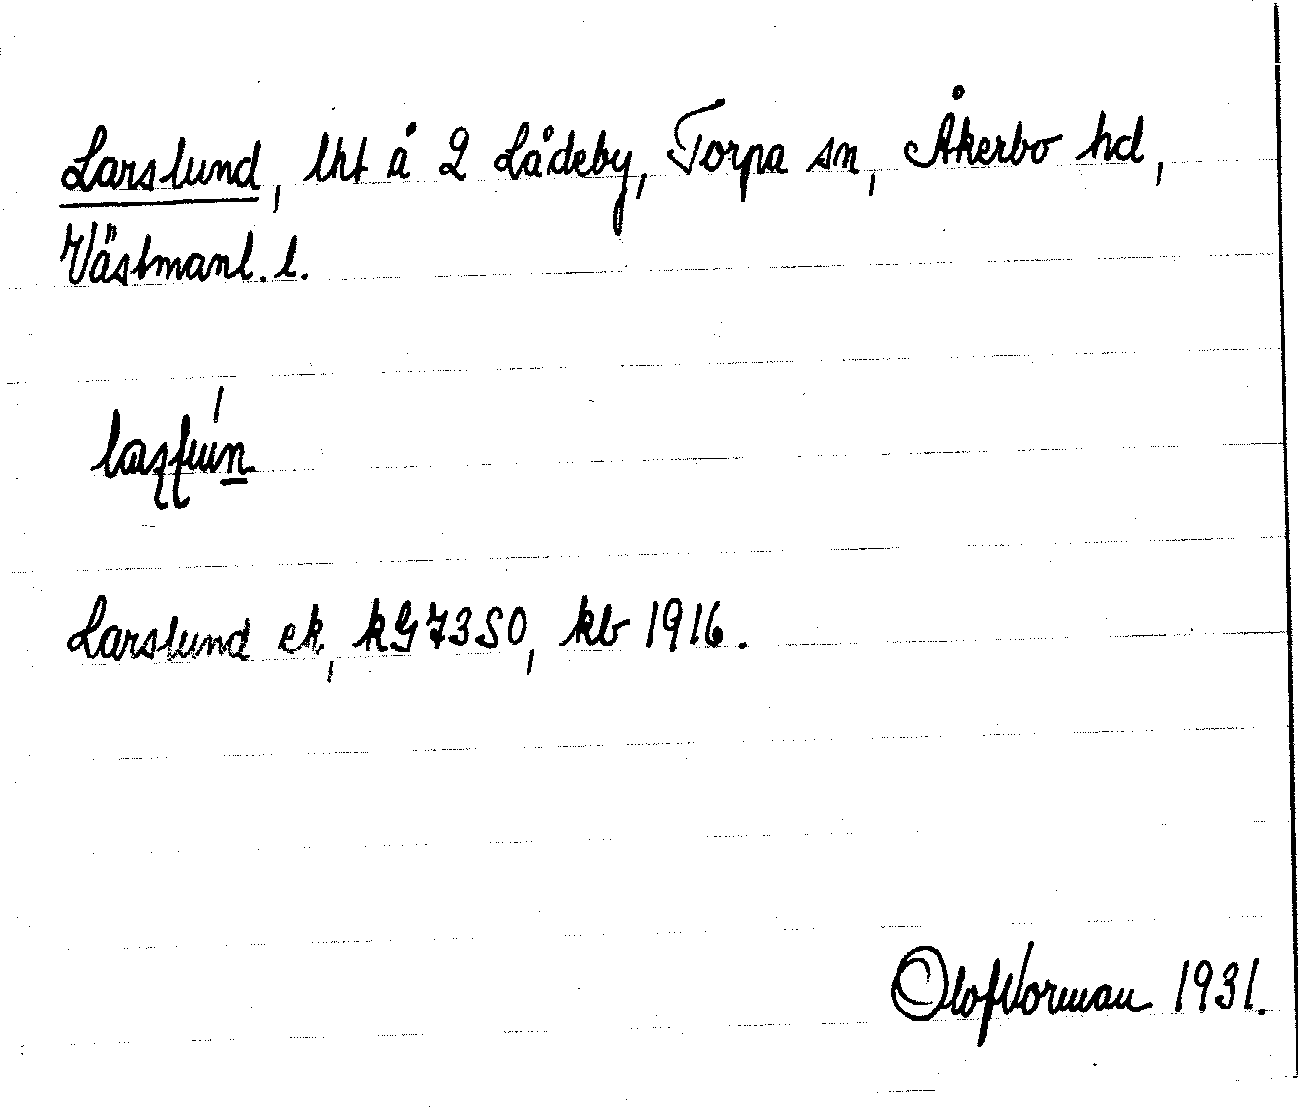 Larslund, lht å 2 Lådeby, Torpa sn, Åkerbo hd,
Västmanl. l.
Larslund ek, kG 73 SO, kb 1916.
Olof Norman 1931.